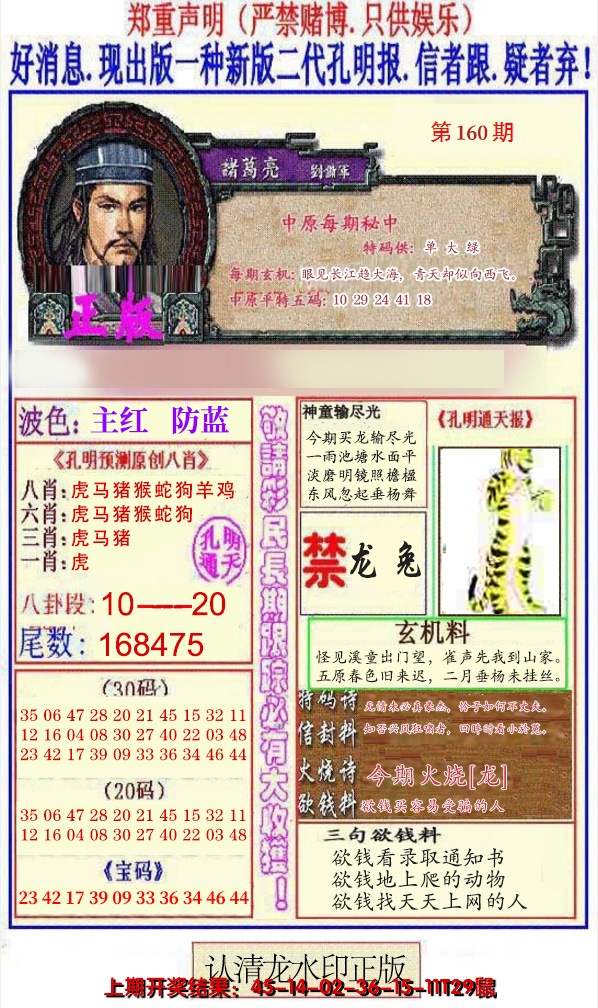 郑重声明（严禁赌博.只供娱乐）
好消息.现出版一种新版二代孔明报.信者跟.疑者弃！
第160期
諸葛亮 劉備軍
中原每期秘中
特码供：单 大 绿
每期玄机：眼见长江趋大海，青天却似向西飞。
中原平特五码：10 29 24 41 18
正版
波色：主红 防蓝
《孔明预测原创八肖》
八肖：虎马猪猴蛇狗羊鸡
六肖：虎马猪猴蛇狗
三肖：虎马猪
一肖：虎
孔明
通天
八卦段：10-----20
尾数：168475
（30码）
35 06 47 28 20 21 45 15 32 11
12 16 04 08 30 27 40 22 03 48
23 42 17 39 09 33 36 34 46 44
（20码）
35 06 47 28 20 21 45 15 32 11
12 16 04 08 30 27 40 22 03 48
《宝码》
23 42 17 39 09 33 36 34 46 44
敬請彩民長期跟踪必有大收獲！
神童输尽光
今期买龙输尽光
一雨池塘水面平
淡磨明镜照檐楹
东风忽起垂杨舞
《孔明通天报》
禁 龙 兔
玄机料
怪见溪童出门望，雀声先我到山家。
五原春色旧来迟，二月垂杨未挂丝。
特码诗 无情未必真豪杰，怜子如何不丈夫。
信封料 知否兴风狂啸者，回眸时看小於菟。
火烧诗 今期火烧[龙]
欲钱料 欲钱买容易受骗的人
三句欲钱料
欲钱看录取通知书
欲钱地上爬的动物
欲钱找天天上网的人
认清龙水印正版
上期开奖结果：45-14-02-36-15-11T29鼠